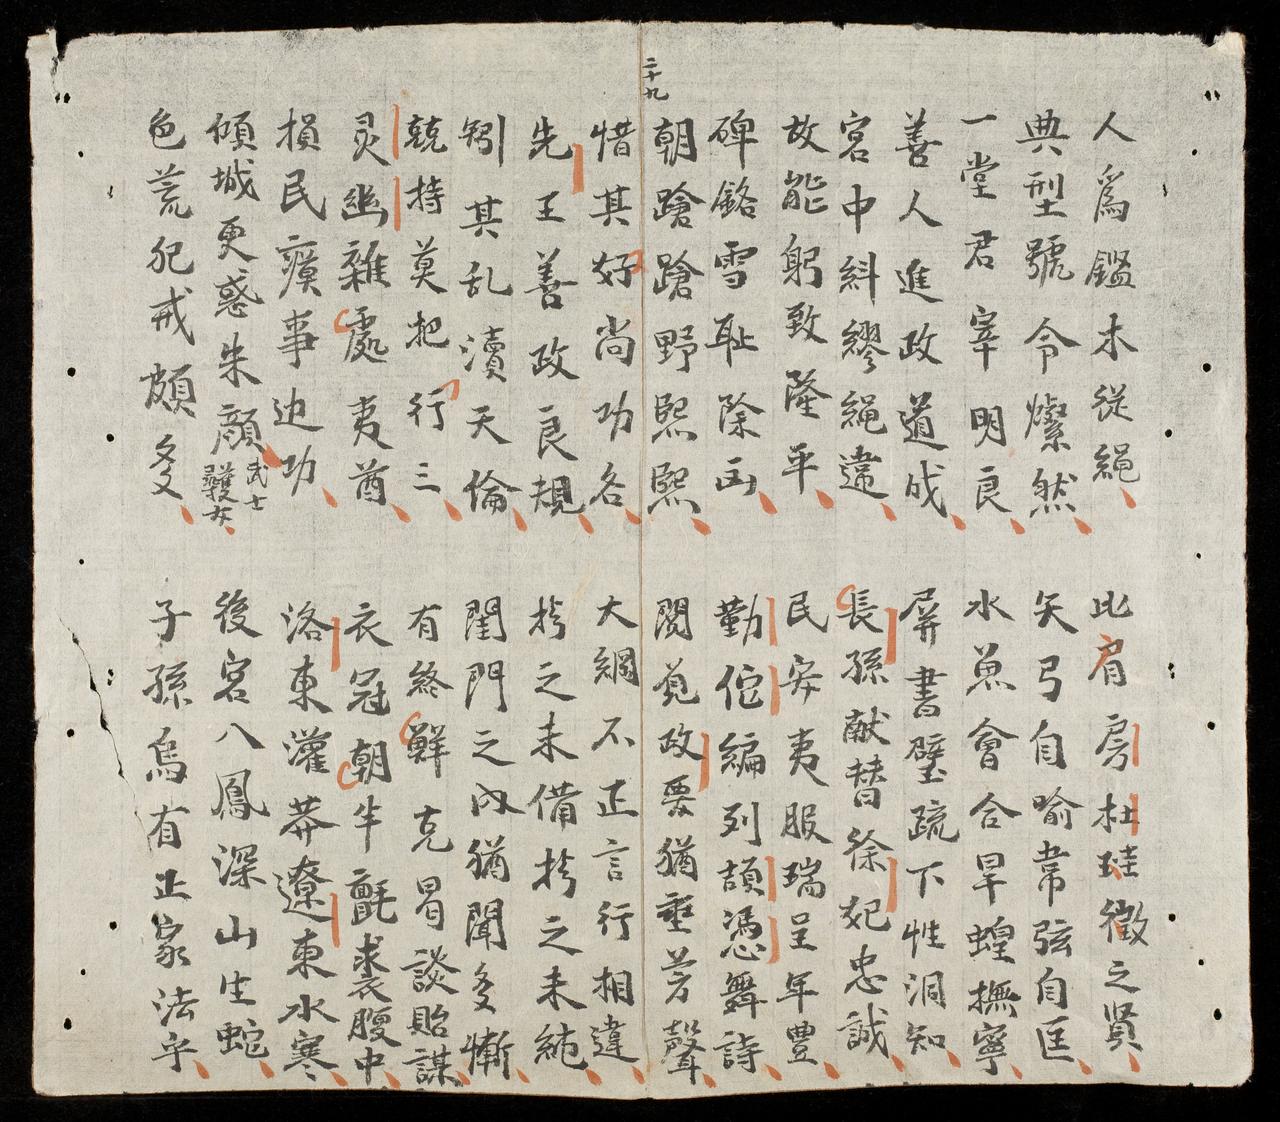 二十九
人爲鑑木從繩
比肩房杜珪徵之賢
典型號令燦然
矢弓自喻韋弦自匡
一堂君宰明良
水魚會合旱蝗撫寧
善人進政道成
屏書壁疏下性洞知
宮中糾繆繩違
長孫献替徐妃忠誠
故能躬致隆平
民安夷服瑞呈年豊
碑銘雪耻除凶
勤佗編列頡憑舞詩
朝蹌蹌野熙熙
閱覓政要猶垂芳聲
惜其好尚功名
大綱不正言行相違
先王善政良規
拷之未備拷之未純
矧其乱瀆天倫
閨門之内猶聞多慚
兢持莫把行三
有終鮮克曷談貽謀
灵幽雜處夷酋
衣冠朝半氈裘腹中
損民癀事边功
洛東灌莽遼東水寒
傾城更惑朱顔
武士
護女
後宮八鳳深山生蛇
色荒犯戒頗多
子孫烏有正家法乎